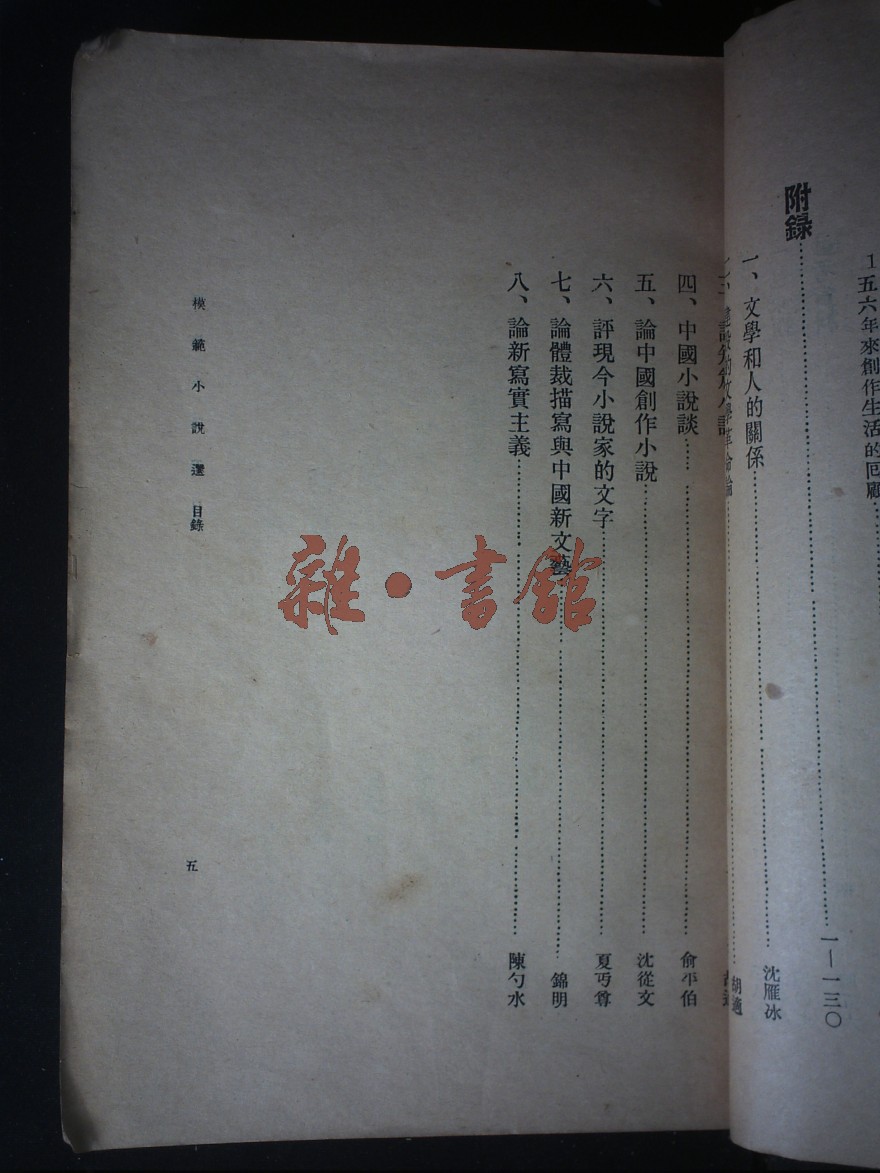 1 五六年來創作生活的回顧
附錄 一—一三〇
一、文學和人的關係 沈雁冰
建設的文學革命論 胡適
四、中國小說談 俞平伯
五、論中國創作小說 沈從文
六、評現今小說家的文字 夏丏尊
七、論體裁描寫與中國新文藝 錦明
八、論新寫實主義 陳勺水
模範小說選 目錄
五
雜·書館